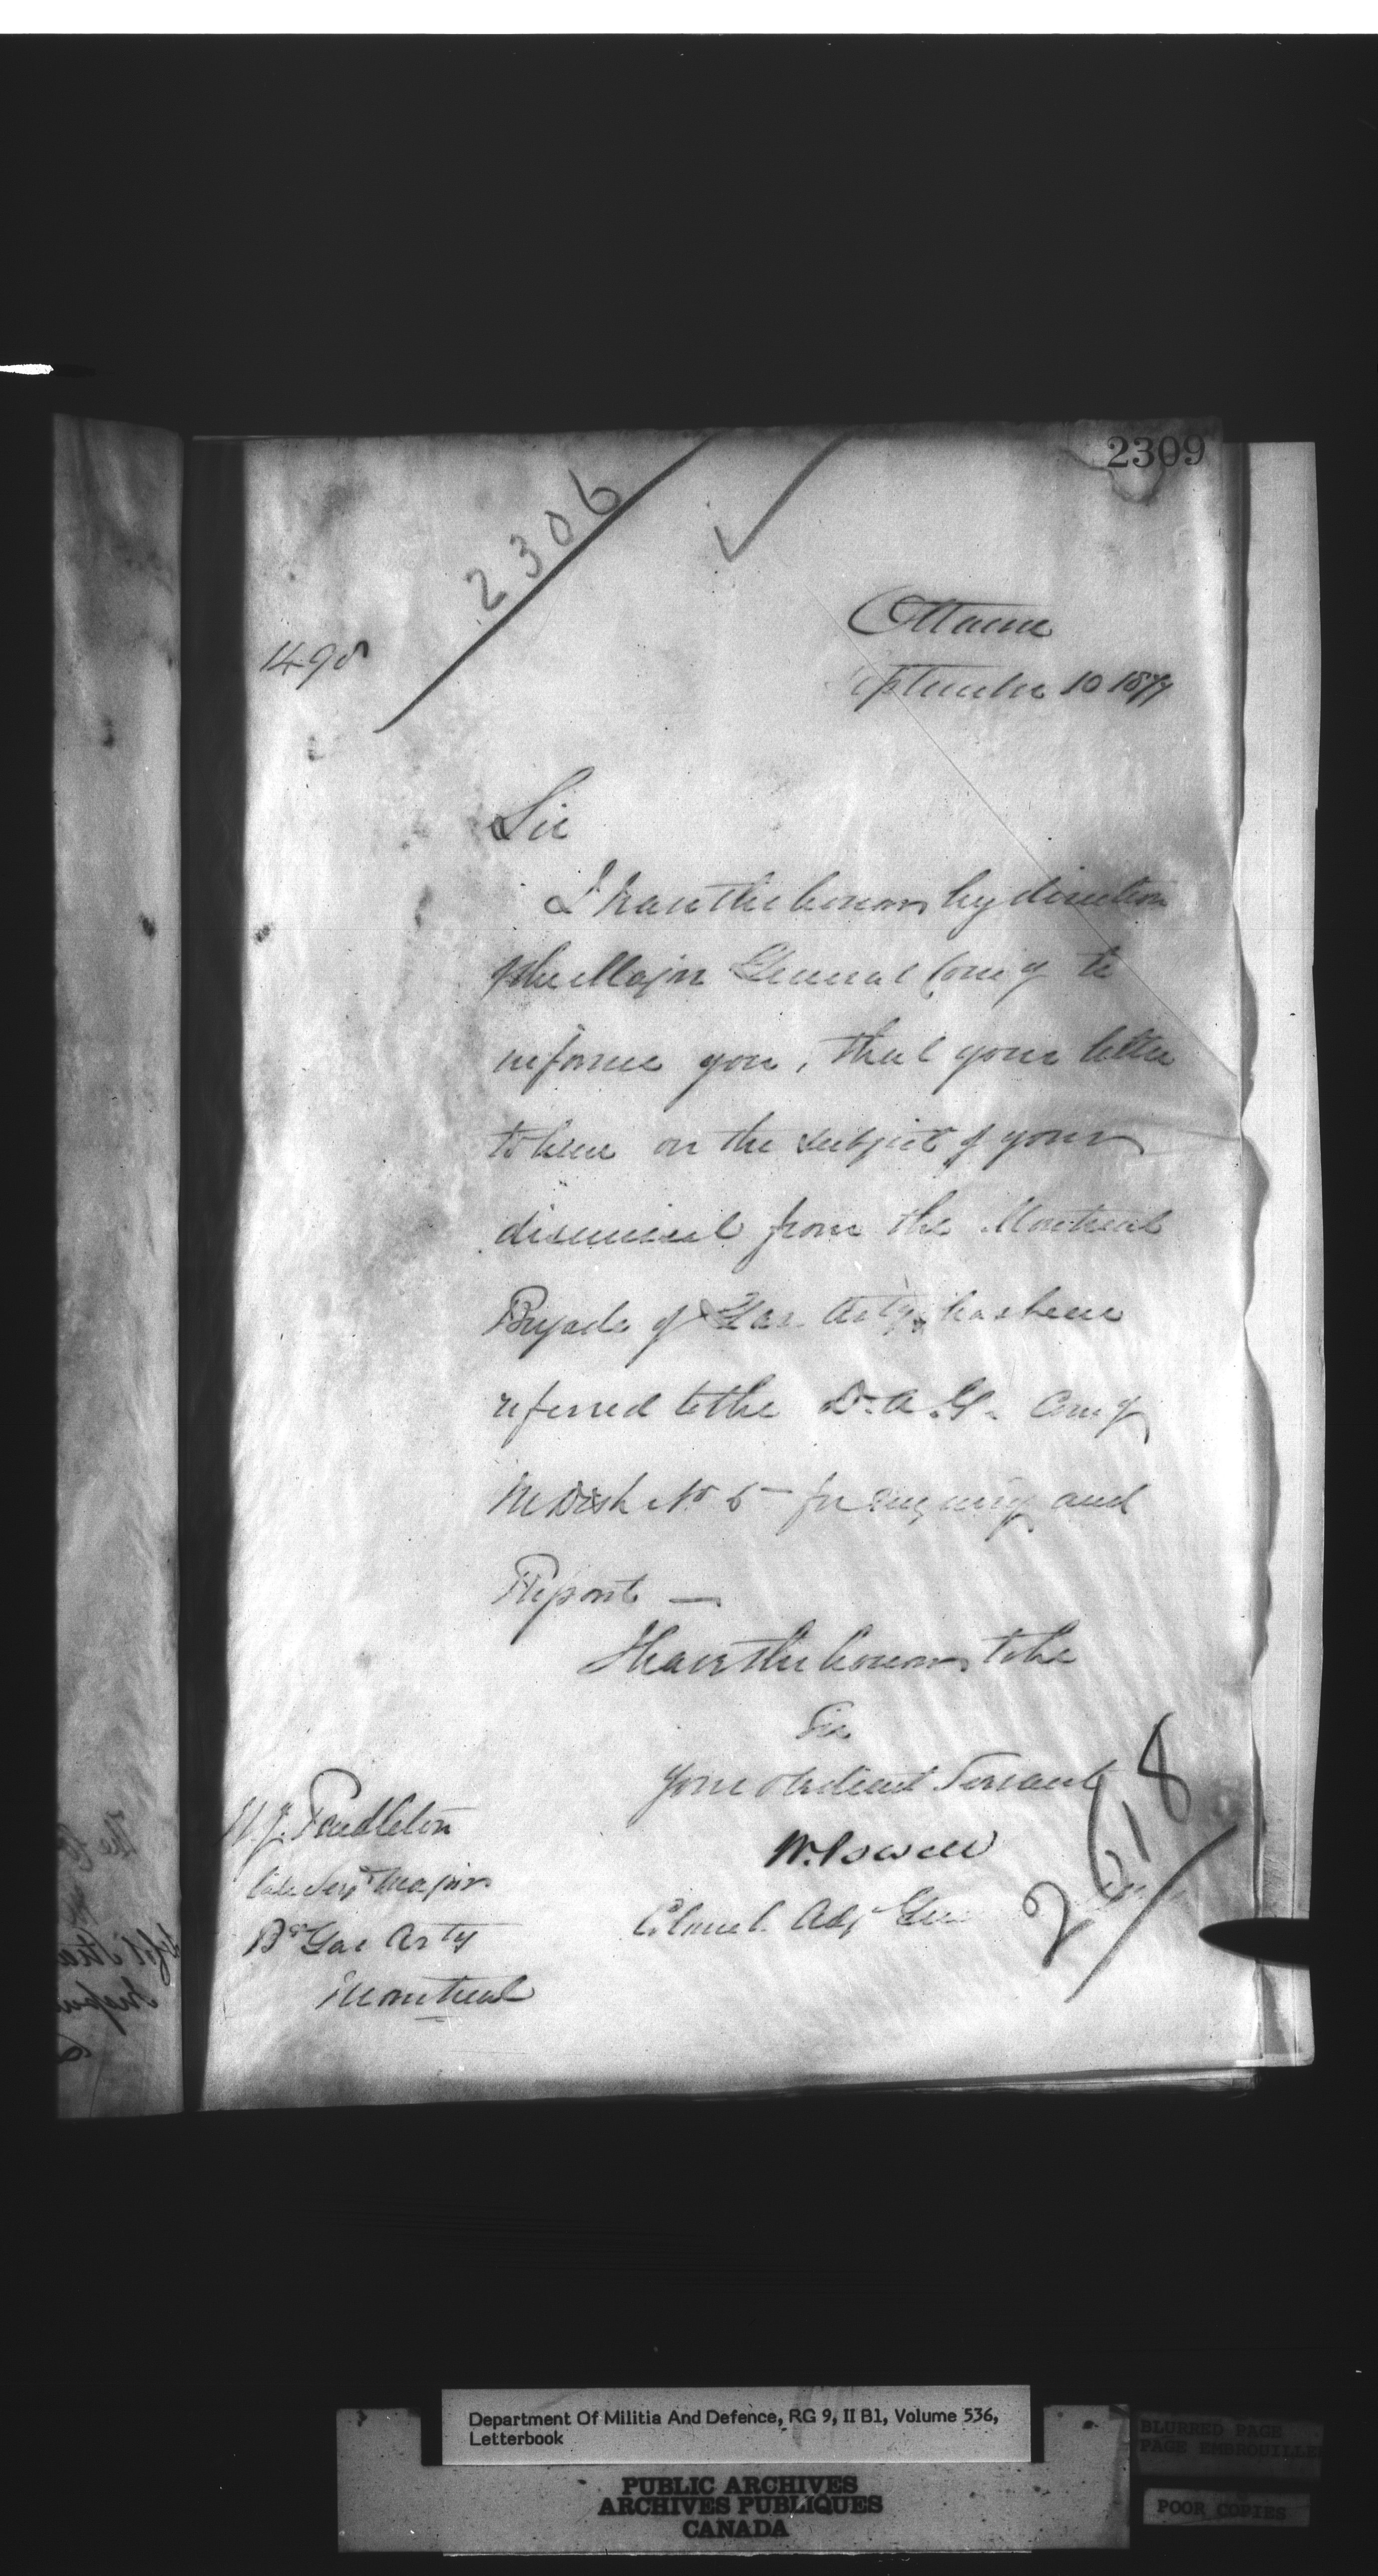 2309
2306
1498
Ottawa
September 10 1877
Sir
I have the honour by direction
of the Major General Comg to
inform you, that your letter
to him on the subject of your
dismissal from the Montreal
Brigade of Gar Arty, has been
referred to the D.A.G. Comg
M Dist No 5 - for enquiry and
Report —
I have the honour to be
Sir
Your obedient Servant
W. Powell
Colonel Adjt Gen
2618
W.J. Pendleton
late Sergt Major
Be Gar Arty
Montreal
Department Of Militia And Defence, RG 9, II B1, Volume 536,
Letterbook
PUBLIC ARCHIVES
ARCHIVES PUBLIQUES
CANADA
BLURRED PAGE
PAGE EMBROUILLEE
POOR COPIES